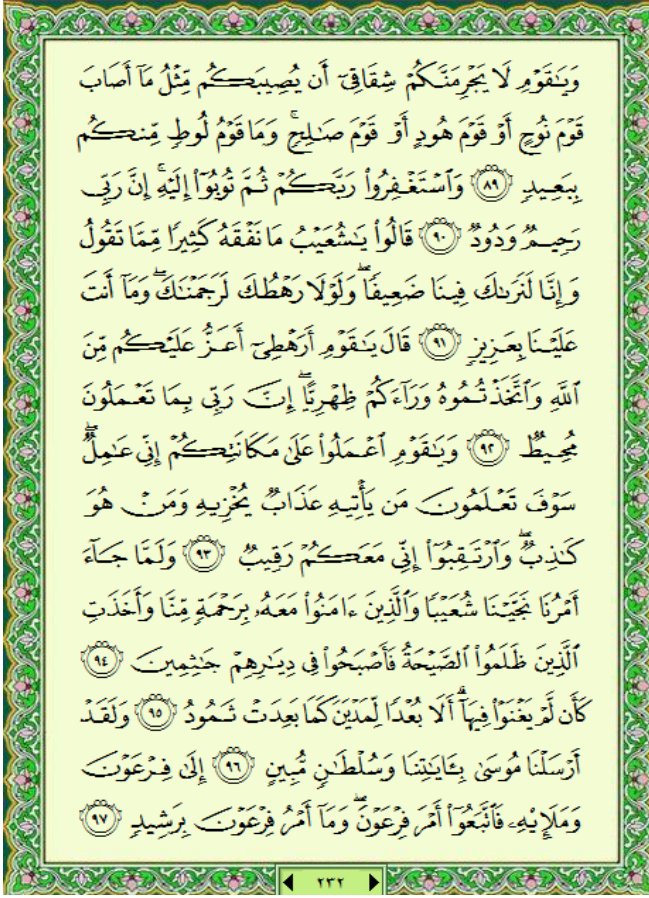 وَيَـٰقَوْمِ لَا يَجْرِمَنَّكُمْ شِقَاقِىٓ أَن يُصِيبَكُم مِّثْلُ مَآ أَصَابَ
قَوْمَ نُوحٍ أَوْ قَوْمَ هُودٍ أَوْ قَوْمَ صَـٰلِحٍ ۚ وَمَا قَوْمُ لُوطٍ مِّنكُم
بِبَعِيدٍ ٨٩ وَٱسْتَغْفِرُوا۟ رَبَّكُمْ ثُمَّ تُوبُوٓا۟ إِلَيْهِ ۚ إِنَّ رَبِّى
رَحِيمٌ وَدُودٌ ٩٠ قَالُوا۟ يَـٰشُعَيْبُ مَا نَفْقَهُ كَثِيرًا مِّمَّا تَقُولُ
وَإِنَّا لَنَرَىٰكَ فِينَا ضَعِيفًا ۖ وَلَوْلَا رَهْطُكَ لَرَجَمْنَـٰكَ ۖ وَمَآ أَنتَ
عَلَيْنَا بِعَزِيزٍ ٩١ قَالَ يَـٰقَوْمِ أَرَهْطِىٓ أَعَزُّ عَلَيْكُم مِّنَ
ٱللَّهِ وَٱتَّخَذْتُمُوهُ وَرَآءَكُمْ ظِهْرِيًّا ۖ إِنَّ رَبِّى بِمَا تَعْمَلُونَ
مُحِيطٌ ٩٢ وَيَـٰقَوْمِ ٱعْمَلُوا۟ عَلَىٰ مَكَانَتِكُمْ إِنِّى عَـٰمِلٌ ۖ
سَوْفَ تَعْلَمُونَ مَن يَأْتِيهِ عَذَابٌ يُخْزِيهِ وَمَنْ هُوَ
كَـٰذِبٌ ۖ وَٱرْتَقِبُوٓا۟ إِنِّى مَعَكُمْ رَقِيبٌ ٩٣ وَلَمَّا جَآءَ
أَمْرُنَا نَجَّيْنَا شُعَيْبًا وَٱلَّذِينَ ءَامَنُوا۟ مَعَهُۥ بِرَحْمَةٍ مِّنَّا وَأَخَذَتِ
ٱلَّذِينَ ظَلَمُوا۟ ٱلصَّيْحَةُ فَأَصْبَحُوا۟ فِى دِيَـٰرِهِمْ جَـٰثِمِينَ ٩٤
كَأَن لَّمْ يَغْنَوْا۟ فِيهَآ ۗ أَلَا بُعْدًا لِّمَدْيَنَ كَمَا بَعِدَتْ ثَمُودُ ٩٥ وَلَقَدْ
أَرْسَلْنَا مُوسَىٰ بِـَٔايَـٰتِنَا وَسُلْطَـٰنٍ مُّبِينٍ ٩٦ إِلَىٰ فِرْعَوْنَ
وَمَلَإِي۟هِۦ فَٱتَّبَعُوٓا۟ أَمْرَ فِرْعَوْنَ ۖ وَمَآ أَمْرُ فِرْعَوْنَ بِرَشِيدٍ ٩٧
٢٣٢